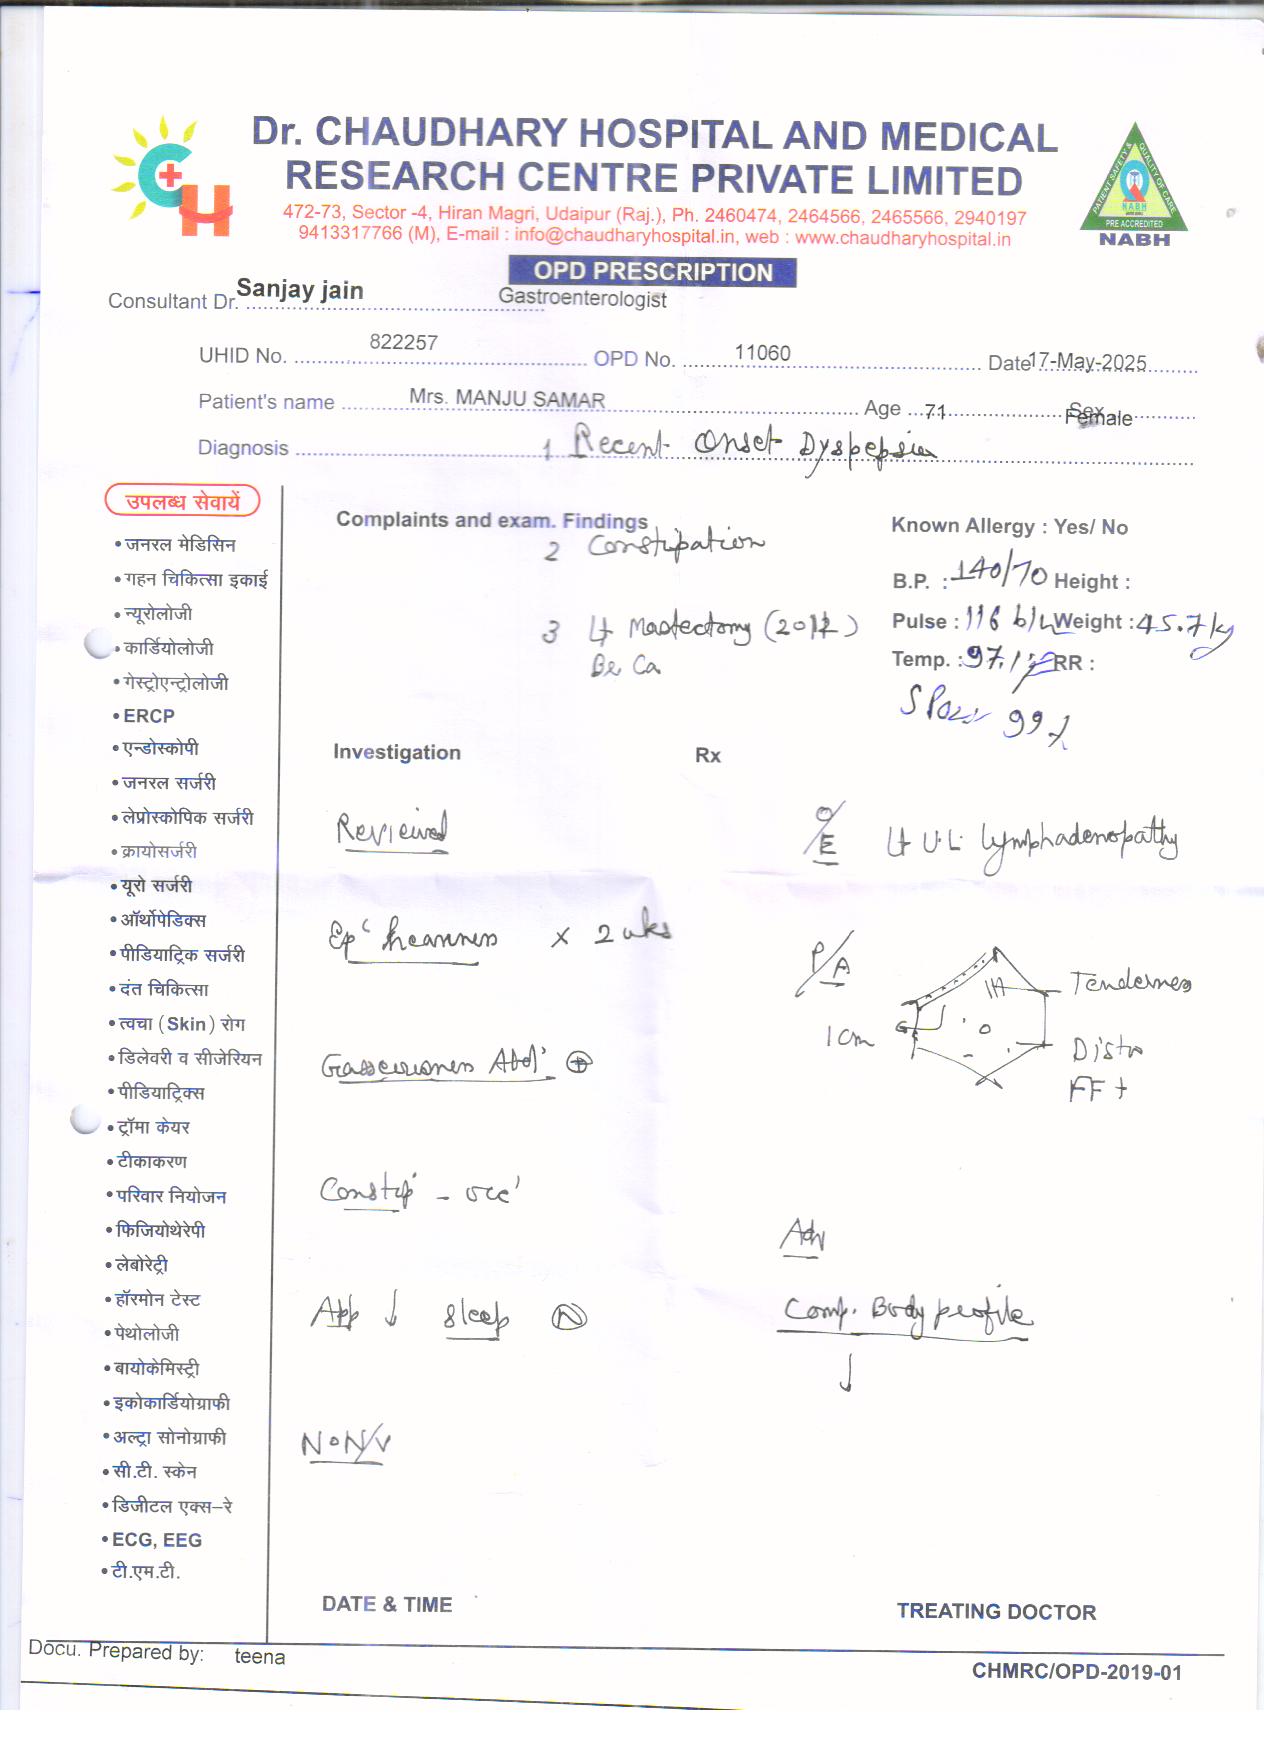 Dr. CHAUDHARY HOSPITAL AND MEDICAL
RESEARCH CENTRE PRIVATE LIMITED
472-73, Sector -4, Hiran Magri, Udaipur (Raj.), Ph. 2460474, 2464566, 2465566, 2940197
9413317766 (M), E-mail : info@chaudharyhospital.in, web : www.chaudharyhospital.in
PATIENT SAFETY & QUALITY OF CARE
NABH
PRE ACCREDITED
NABH
OPD PRESCRIPTION
Consultant Dr. Sanjay jain Gastroenterologist
UHID No. 822257 OPD No. 11060 Date 17-May-2025
Patient's name Mrs. MANJU SAMAR Age 71 Sex Female
Diagnosis 1 Recent Onset Dyspepsia
उपलब्ध सेवायें
• जनरल मेडिसिन
• गहन चिकित्सा इकाई
• न्यूरोलॉजी
• कार्डियोलॉजी
• गेस्ट्रोएन्ट्रोलॉजी
• ERCP
• एन्डोस्कोपी
• जनरल सर्जरी
• लेप्रोस्कोपिक सर्जरी
• क्रायोसर्जरी
• यूरो सर्जरी
• ऑर्थोपेडिक्स
• पीडियाट्रिक सर्जरी
• दंत चिकित्सा
• त्वचा (Skin) रोग
• डिलेवरी व सीजेरियन
• पीडियाट्रिक्स
• ट्रॉमा केयर
• टीकाकरण
• परिवार नियोजन
• फिजियोथेरेपी
• लेबोरेट्री
• हॉरमोन टेस्ट
• पेथोलोजी
• बायोकेमिस्ट्री
• इकोकार्डियोग्राफी
• अल्ट्रा सोनोग्राफी
• सी.टी. स्केन
• डिजीटल एक्स–रे
• ECG, EEG
• टी.एम.टी.
Complaints and exam. Findings
2 Constipation
3 Lt Mastectomy (2012)
Br Ca
Known Allergy : Yes/ No
B.P. : 140/70 Height :
Pulse : 116 b/m Weight : 45.7 kg
Temp. : 97.1 RR :
SPO2 99%
Investigation
Rx
Reviewed
O/E Lt U.L. lymphadenopathy
Ep' heaviness x 2 wks
P/A
Tenderness
1 cm
Distn
FF +
Gaseousness Abd' ⊕
Constip' - occ'
Adv
App ↓ Sleep Ⓝ
Comp. Body profile
↓
No N/V
DATE & TIME
TREATING DOCTOR
Docu. Prepared by: teena
CHMRC/OPD-2019-01